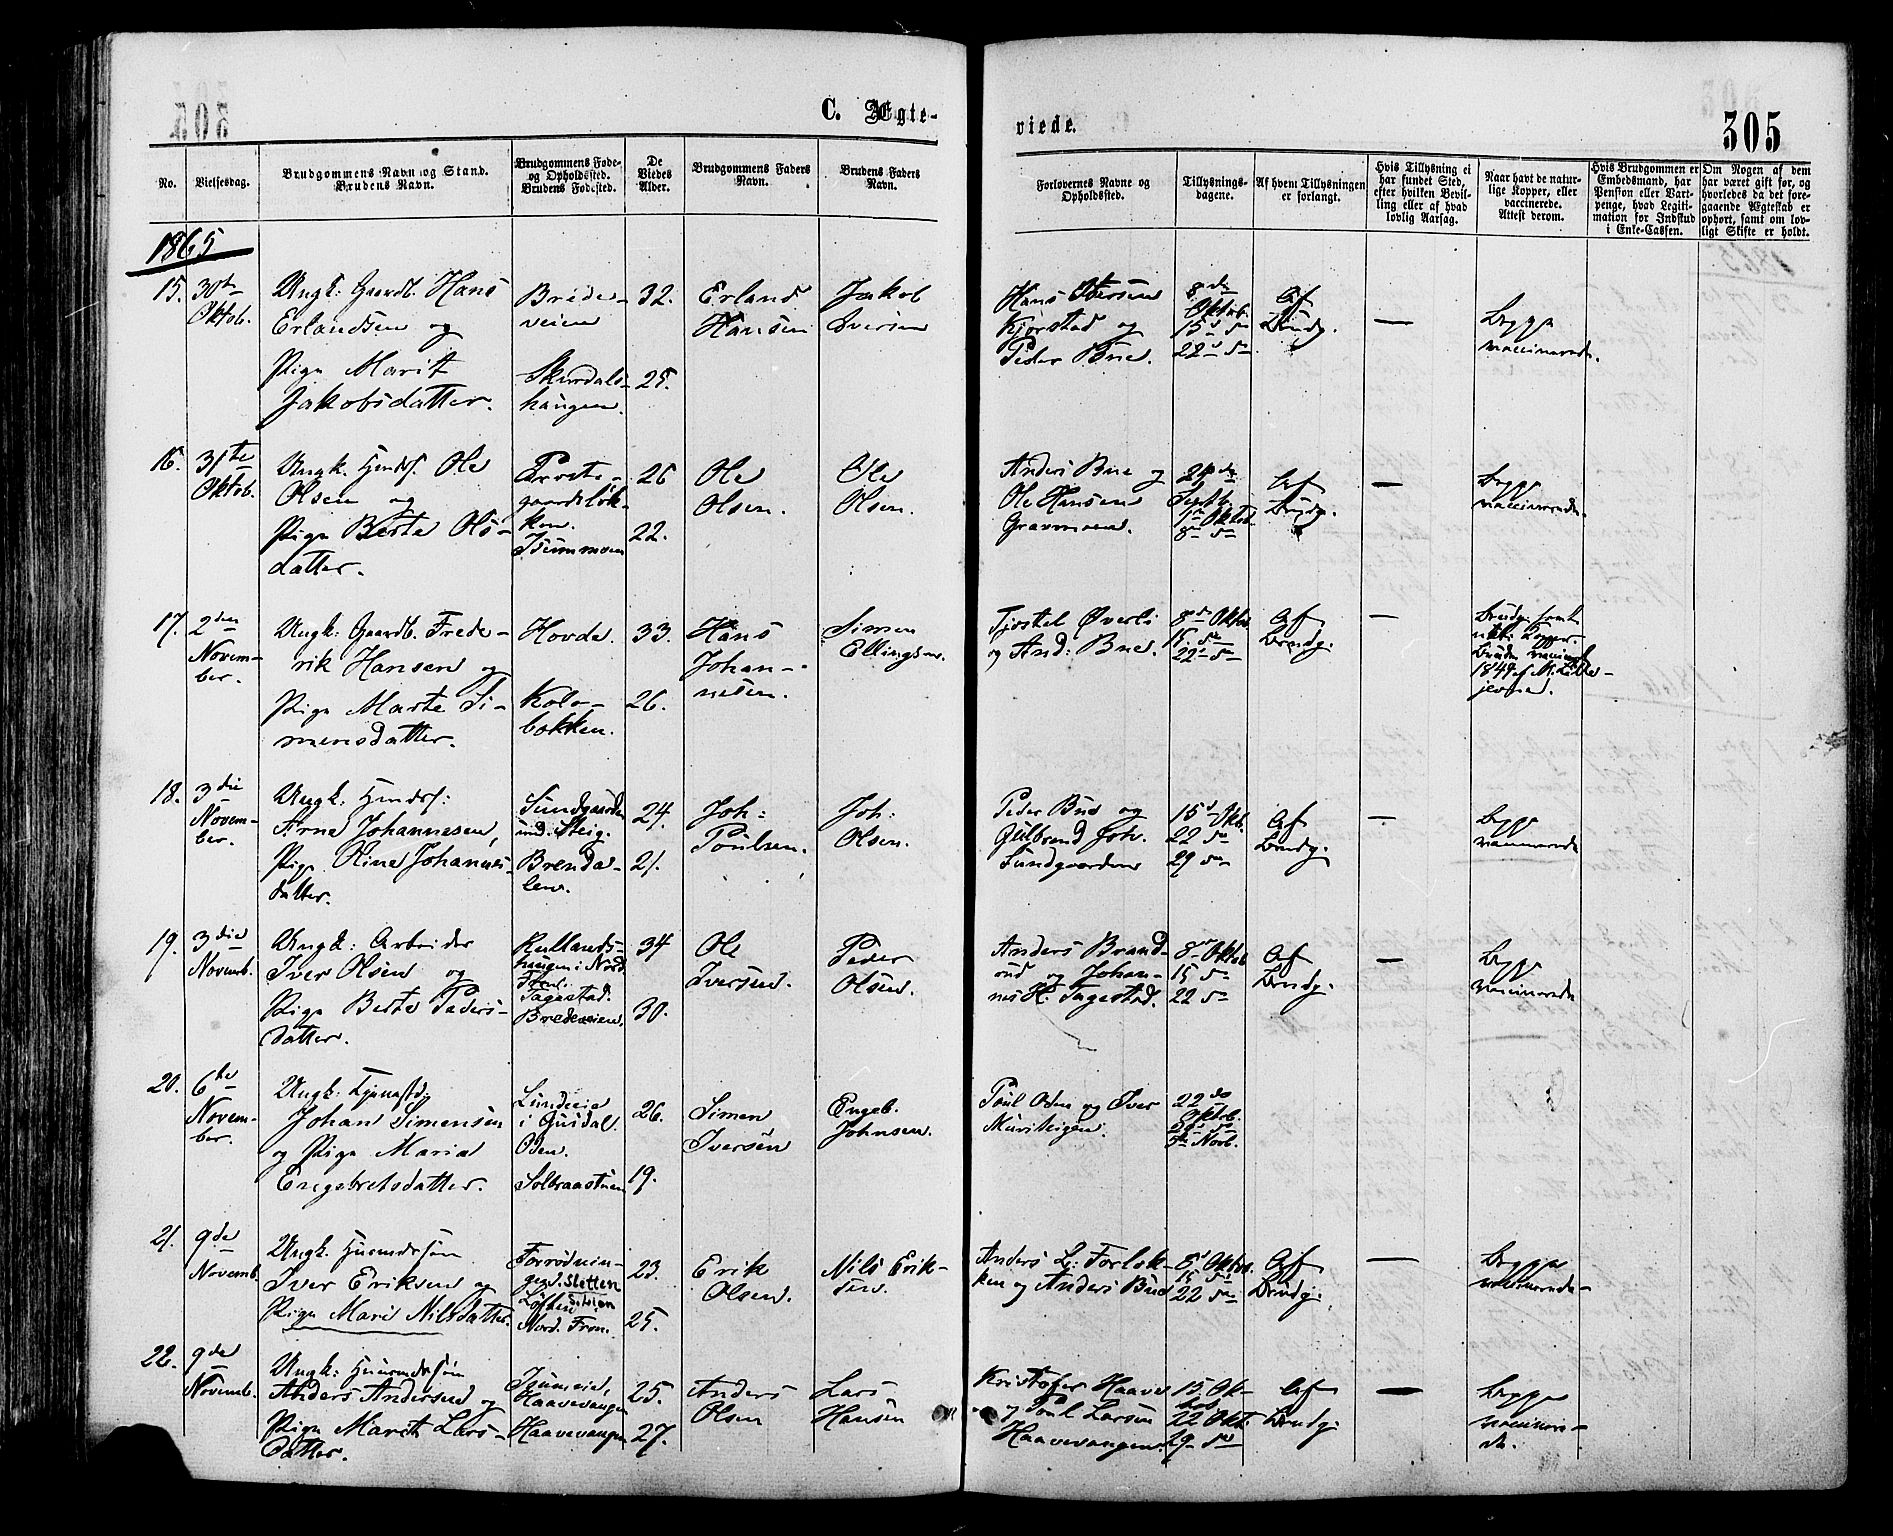 C. Ægte-
viede.
305
No.
Vielsesdag.
Brudgommens Navn og Stand.
Brudens Navn.
Brudgommens Føde-
og Opholdssted.
Brudens Fødested.
De
Viedes
Alder.
Brudgommens Faders
Navn.
Brudens Faders
Navn.
Forlovernes Navne og
Opholdssted.
Tillysnings-
dagene.
Af hvem Tillysningen
er forlangt.
Hvis Tillysning ei
har fundet Sted,
efter hvilken Bevil-
ling eller af hvad
lovlig Aarsag.
Naar havt de natur-
lige Kopper, eller
vaccinerede.
Attest derom.
Hvis Brudgommen er
Embedsmand, har
Pension eller Vart-
penge, hvad Legiti-
mation for Indskud
i Enke-Cassen.
Om Nogen af dem
har været gift før, og
hvorledes da det fore-
gaaende Ægteskab er
ophørt, samt om lov-
ligt Skifte er holdt.
1865
15.
30te
Oktob.
Ungk: Gaardb. Hans
Erlandsen og
Pige Marit
Jakobsdatter.
Brede-
veien
Skurdals-
haugen.
32.
25.
Erland
Hansen
Jakob
Iversen
Hans Iversen
Kjørstad og
Peder Bue.
8de
Oktob.
15 de
22 de
Af
Brudg.
—
Begge
vaccinerede.
16.
31te
Oktob.
Ungk. Huusm. Ole
Olsen og
Pige Berte Ols-
datter.
Præste-
gaardsløk-
ken.
Isummoen
26
22.
Ole
Olsen.
Ole
Olsen.
Anders Bue og
Ole Hansen
Gravmoen.
Septb.
1ste Oktob.
8 de
Af
Brudg.
—
Begge
vaccinerede.
17.
2den
Novem-
ber.
Ungk: Gaardb. Frede-
rik Hansen og
Pige Marte Si-
mensdatter.
Hovde.
Kolo-
bakken.
33.
26.
Hans
Johan-
nesen.
Simen
Ellingsen.
Tjøstel Øverli
og And: Bue.
8de Oktob
15. de
22 de
Af
Brudg.
—
Brudg. havt
natl. Kopper.
Bruden vaccineret
1849 af M. Lille-
jevne.
18.
3die
Novem-
ber.
Ungk. Huusf:
Arne Johannesen,
Pige Rine Johannes-
datter.
Sundgaarden
und. Steig.
Brenda-
len.
24.
21.
Joh:
Poulsen.
Joh:
Olsen.
Peder Bue og
Gulbrand Joh.
Sundgaarden
15de Okb.
22 de
29 de
Af
Brudg.
—
Begge
vaccinerede
19.
3die
Novemb.
Ungk: Arbeider
Iver Olsen og
Pige Berte Peders-
datter.
Rullands-
haugen i Nord
Fron.
Tagestad.
Bredeveien.
34
30.
Ole
Iversen.
Peder
Olsen.
Anders Brand-
rud og Johan-
nes H. Tagestad.
8de Oktob
15 de
22 de
Af
Brudg.
—
Begge
vaccinerede
20.
6te
Novem-
ber.
Ungk: Tjenestd.
Johan Simensen
og Pige Maria
Engebretsdatter.
Lundeeie
i Gusdal.
Oden.
Solbraastuen
26.
19.
Simen
Iversen
Engeb.
Johnsen.
Poul Oden og Iver
Muristigen.
22de
Oktob.
29 de
5te Novb.
21.
9de
Novemb.
Ungk. Huusmdssøn
Iver Eriksen og
Pige Mari Nilsdatter.
Forrødnin-
gen. Sletten
Nord. Fron.
23.
25.
Erik
Olsen.
Nils Erik-
sen.
Anders L: Forløk-
ken og Anders Bue
8de Oktob.
15 de
22 de
Af
Brudg.
—
Begge
vaccinerede-
22.
9de
Novemb.
Ungk: Huusmdssøn
Anders Andersen og
Pige Marit Lars-
datter.
Isumeie,
Haavevangen
Haavevangen
25.
27.
Anders
Olsen
Lars
Hansen
Kristofer Haave
og Poul Larsen
Haavevangen.
15. Ok-
tob
22 Okt.
29 de
Af
Brudg.
—
Begge
vaccinere-
de.